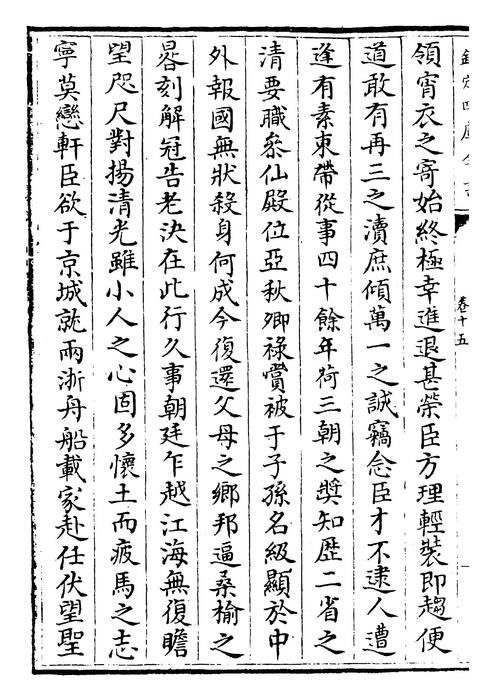 欽定四庫全書
卷十五
領宵衣之寄始終極幸進退甚榮臣方理輕裝即趨便
道敢有再三之瀆庶傾萬一之誠竊念臣才不逮人遭
逢有素束帶從事四十餘年荷三朝之獎知歷二省之
清要職叅仙殿位亞秋卿祿賞被于子孫名級顯於中
外報國無狀殺身何成今復還父母之鄉邦逼桑榆之
晷刻解冠告老決在此行久事朝廷乍越江海無復瞻
望咫尺對揚清光雖小人之心固多懷土而疲馬之志
寧莫戀軒臣欲于京城就兩浙舟船載家赴任伏望聖